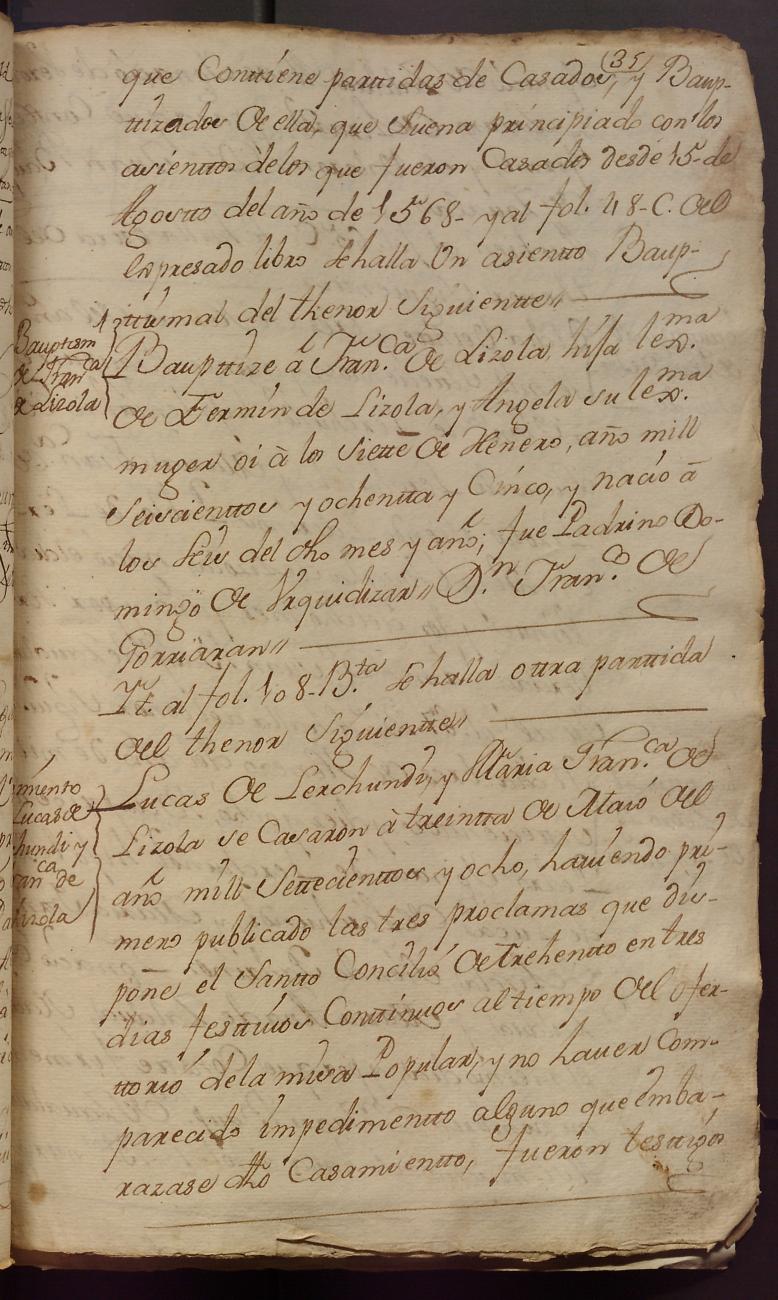 (35)
que Conttiene parttidas de Casados, y Baup-
ttizados de ella, que Suena principiado con los
asienttos de los que fueron Casados desde 15- de
Agostto del año de 1568- y al fol. 48-C. del
expresado libro se halla Un asientto Baup-
ttismal del thenor Siguientte〃
Bauptism
de Franca
de Lizola
Baupttize á Fran.ca de Lizola hija lexma
de Fermin de Lizola, y Angela su lexma
muger oi à los Siette de Henero, año mill
Seiscienttos y ochentta y Cinco, y nacio à
los seis del dho mes y año; fue Padrino Do-
mingo de Urquidizar〃 D.n Fran.co de
Gorriaran〃
Yt. al fol. 108-B.ta se halla ottra parttida
del thenor Siguientte〃
miento
Lucas de
hundi y
anca de
Lizola
Lucas de Lerchundi, y Maria Fran.ca de
Lizola se Casaron à treintta de Maio del
año mill Settecienttos y ocho, haviendo pri-
mero publicado las tres proclamas que dis-
pone el Santto Concilio de Trehentto en tres
dias festtivos Conttinuos al tiempo del ofer-
ttorio de la misa Popular, y no haver Com-
parecido impedimentto alguno que emba-
razase dho Casamientto, fueron testtigos